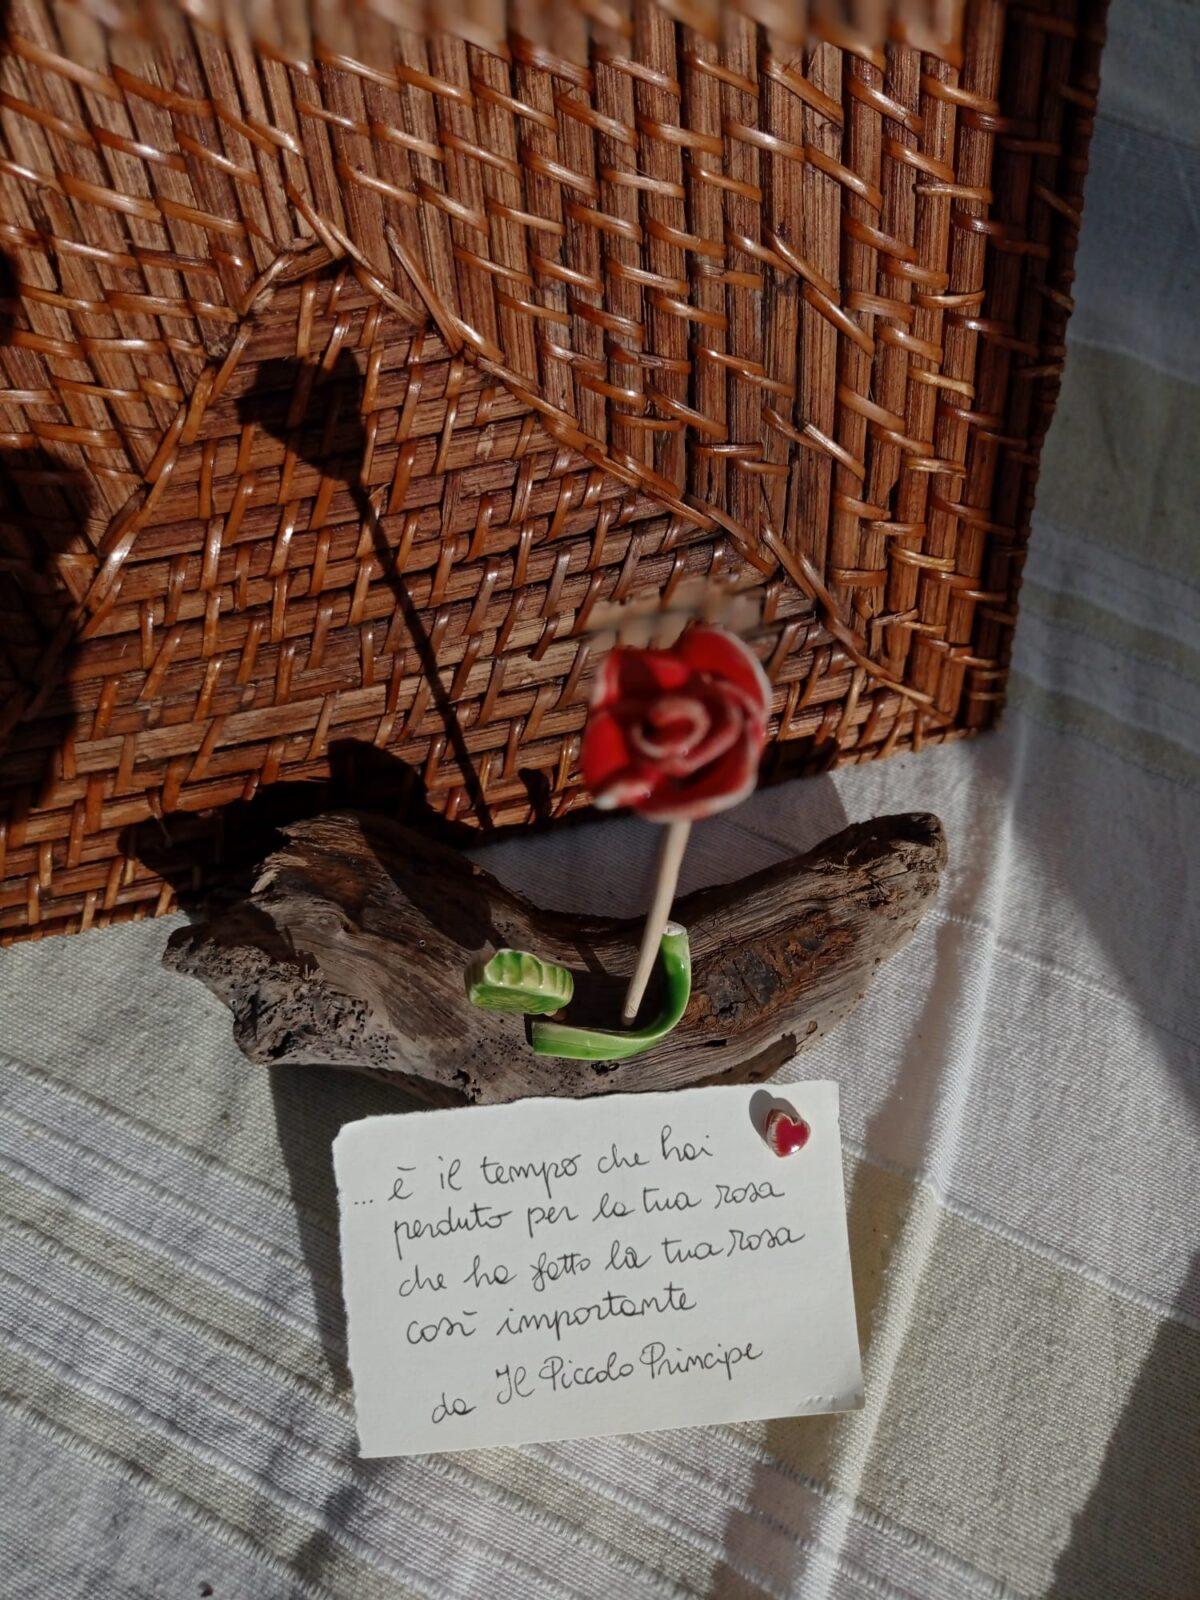 ... è il tempo che hai
perduto per la tua rosa
che ha fatto la tua rosa
così importante
da Il Piccolo Principe